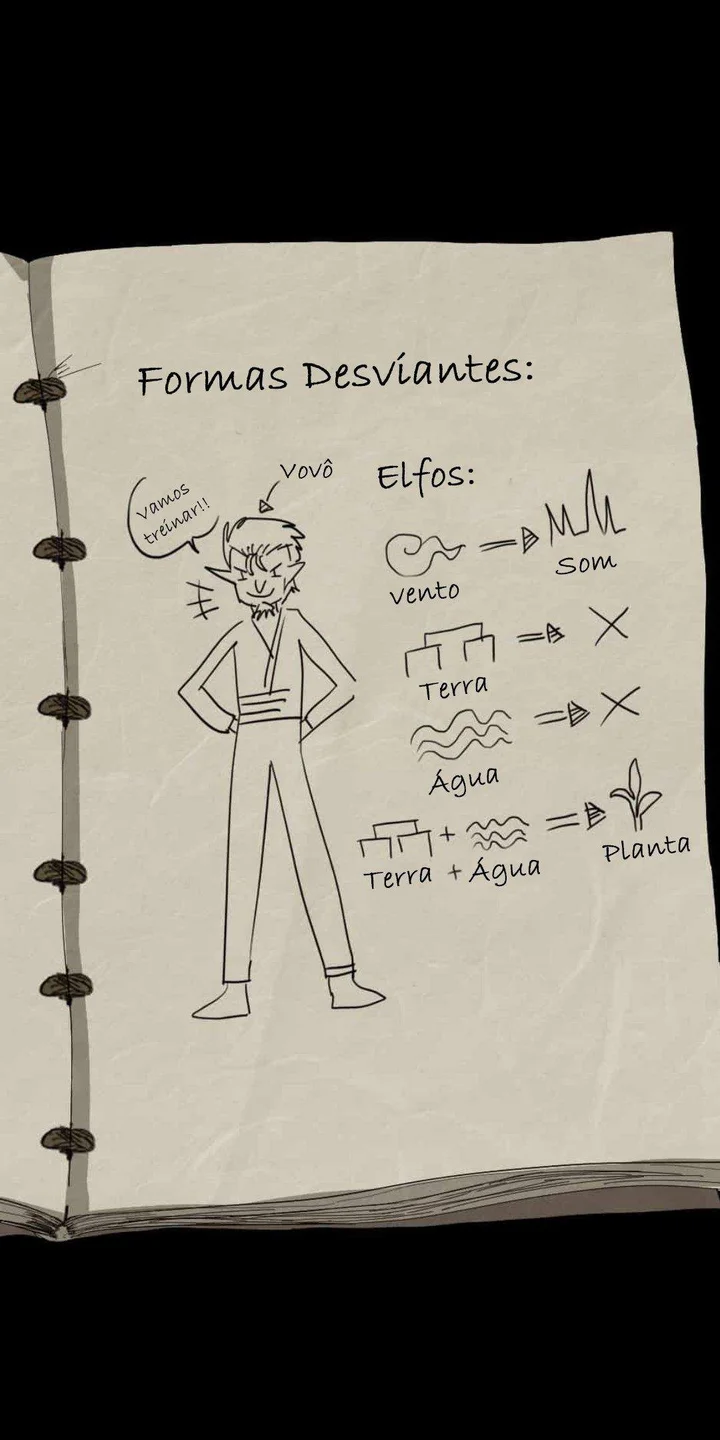 Formas Desviantes:
vamos
treinar!!
Vovô
Elfos:
vento
Som
Terra
Água
Terra + Água
Planta